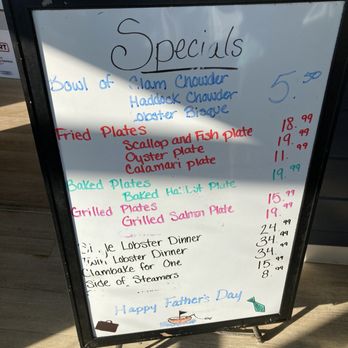 Specials
Bowl of Clam Chowder 5.50
Haddock Chowder
Lobster Bisque
Fried Plates
Scallop and Fish plate 18.99
Oyster plate 19.99
Calamari plate 11.99
Baked Plates
Baked Halibut Plate 19.99
Grilled Plates 15.99
Grilled Salmon Plate 19.99
Lobster Dinner 24.99
Twin Lobster Dinner 34.99
Clambake for One 34.99
Side of Steamers 15.99
8.99
Happy Father's Day